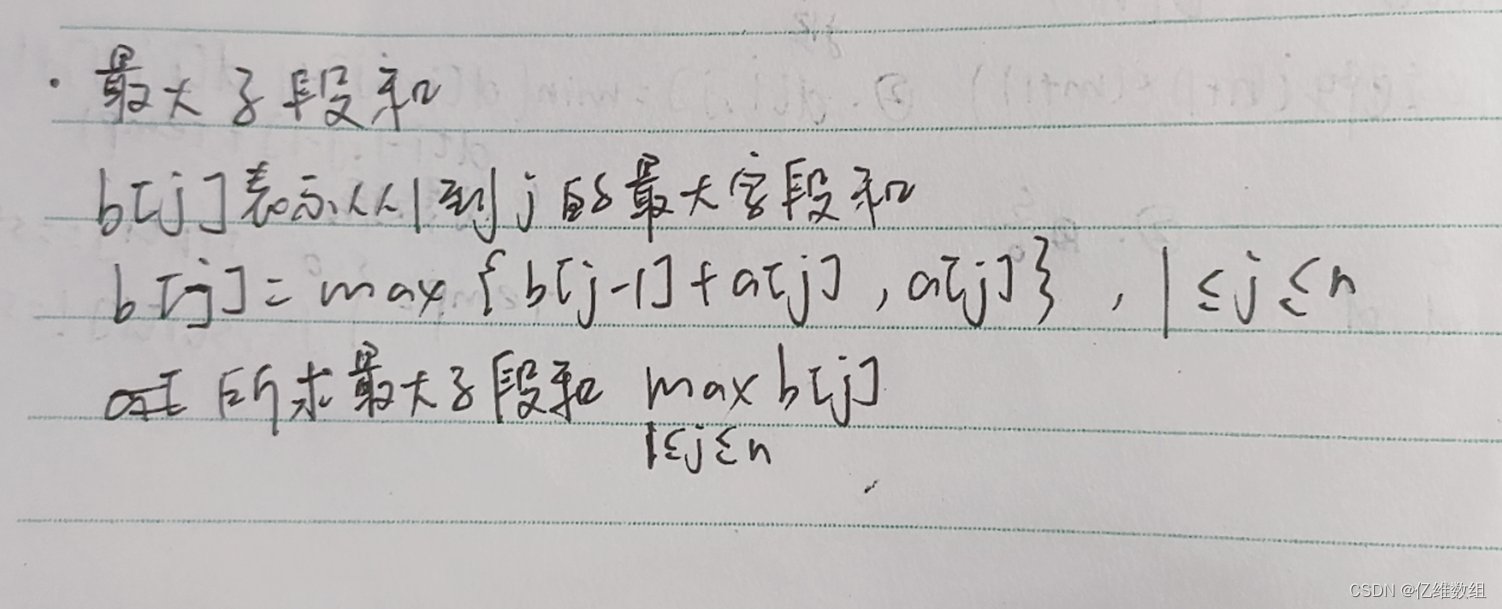 · 最大子段和
b[j]表示从1到j的最大字段和
b[j]=max{b[j-1]+a[j],a[j]},1≤j≤n
所求最大子段和 max b[j]
1≤j≤n
CSDN @亿维数组